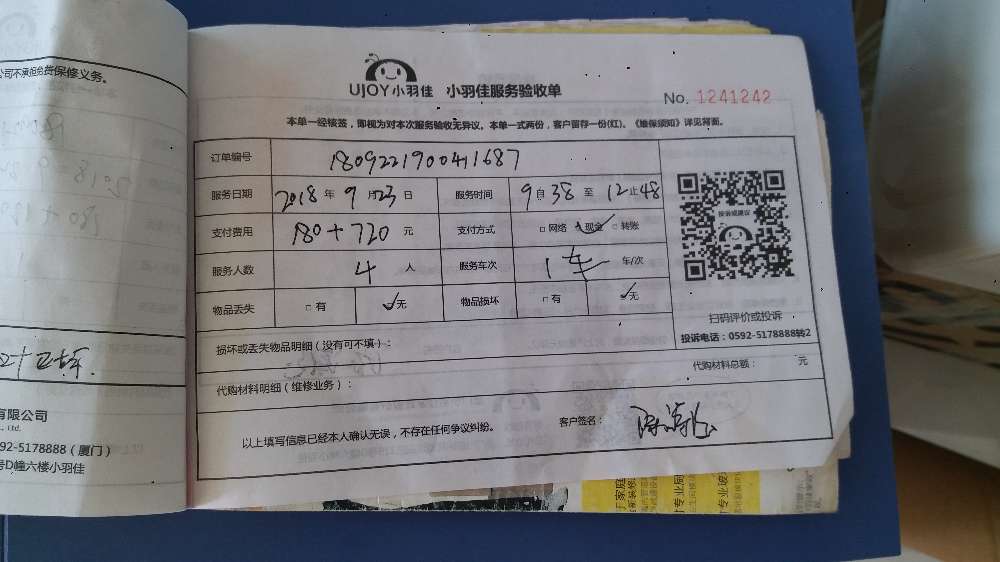 公司不承担免费保修义务。
有限公司
., Ltd.
92-5178888（厦门）
号D幢六楼小羽佳
UJOY小羽佳 小羽佳服务验收单
No. 1241242
本单一经核签，即视为对本次服务验收无异议。本单一式两份，客户留存一份(红)。《维保须知》详见背面。
订单编号 180922190041687
服务日期 2018年9月23日 服务时间 9自38至12止48
支付费用 180+720元 支付方式 □网络 现金 □转账
服务人数 4人 服务车次 1车 车/次
物品丢失 □有 无 物品损坏 □有 无
投诉或建议
扫码评价或投诉
投诉电话：0592-5178888转2
损坏或丢失物品明细（没有可不填）：
代购材料明细（维修业务）： 代购材料总额： 元
以上填写信息已经本人确认无误，不存在任何争议纠纷。 客户签名：